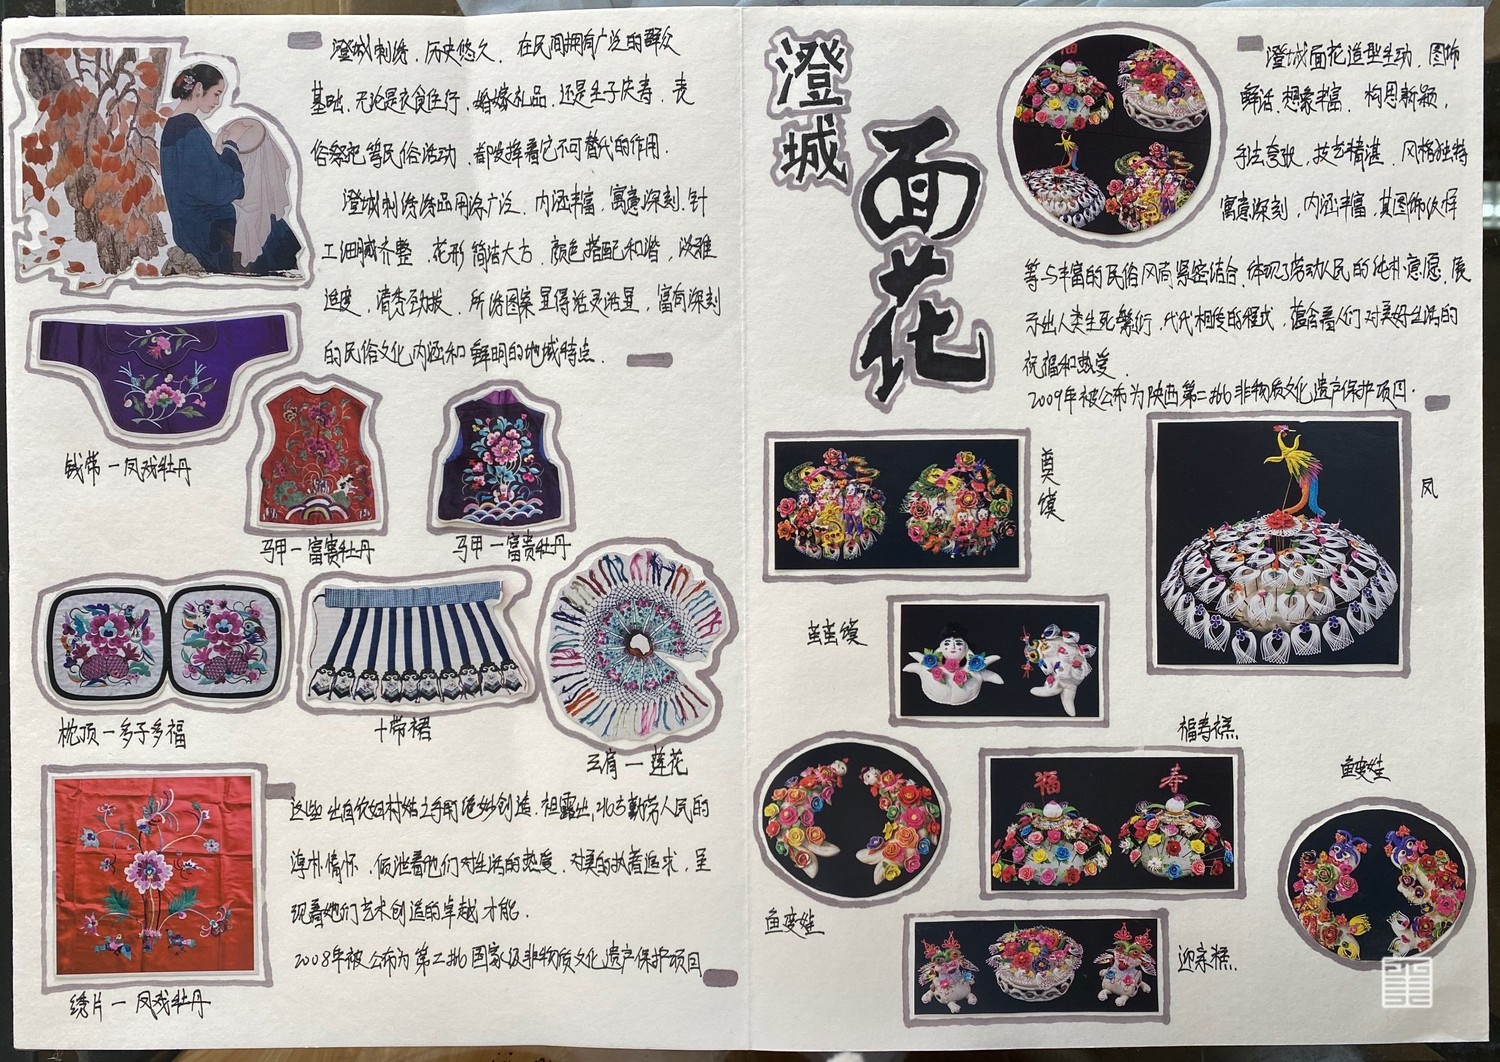 澄城刺绣，历史悠久，在民间拥有广泛的群众
基础，无论是衣食住行，婚嫁礼品，还是生子庆寿，丧
俗祭祀等民俗活动，都发挥着它不可替代的作用．
澄城刺绣绣品用途广泛，内涵丰富，寓意深刻，针
工细腻齐整，花形简洁大方，颜色搭配和谐，淡雅
适度，清秀劲拔，所绣图案显得活灵活显，富有深刻
的民俗文化内涵和鲜明的地域特点．
钱带一凤戏牡丹
马甲一富贵牡丹
马甲一富贵牡丹
枕顶一多子多福
十带裙
云肩一莲花
这些出自农妇村姑之手的绝妙创造，袒露出，北方勤劳人民的
淳朴情怀，倾泄着他们对生活的热爱，对美的执着追求，呈
现着她们艺术创造的卓越才能．
2008年被公布为第二批国家级非物质文化遗产保护项目
绣片一凤戏牡丹
澄城
面花
澄城面花造型生动，图饰
鲜活，想象丰富，构思新颖，
手法夸张，技艺精湛，风格独特
寓意深刻，内涵丰富，其图饰仪样
等与丰富的民俗风情紧密结合，体现了劳动人民的纯朴意愿，展
示出人类生死繁衍，代代相传的程式，蕴含着人们对美好生活的
祝福和热爱．
2009年被公布为陕西第二批非物质文化遗产保护项目．
奠馍
凤
福寿糕
鱼变娃
福
寿
鱼变娃
迎亲糕